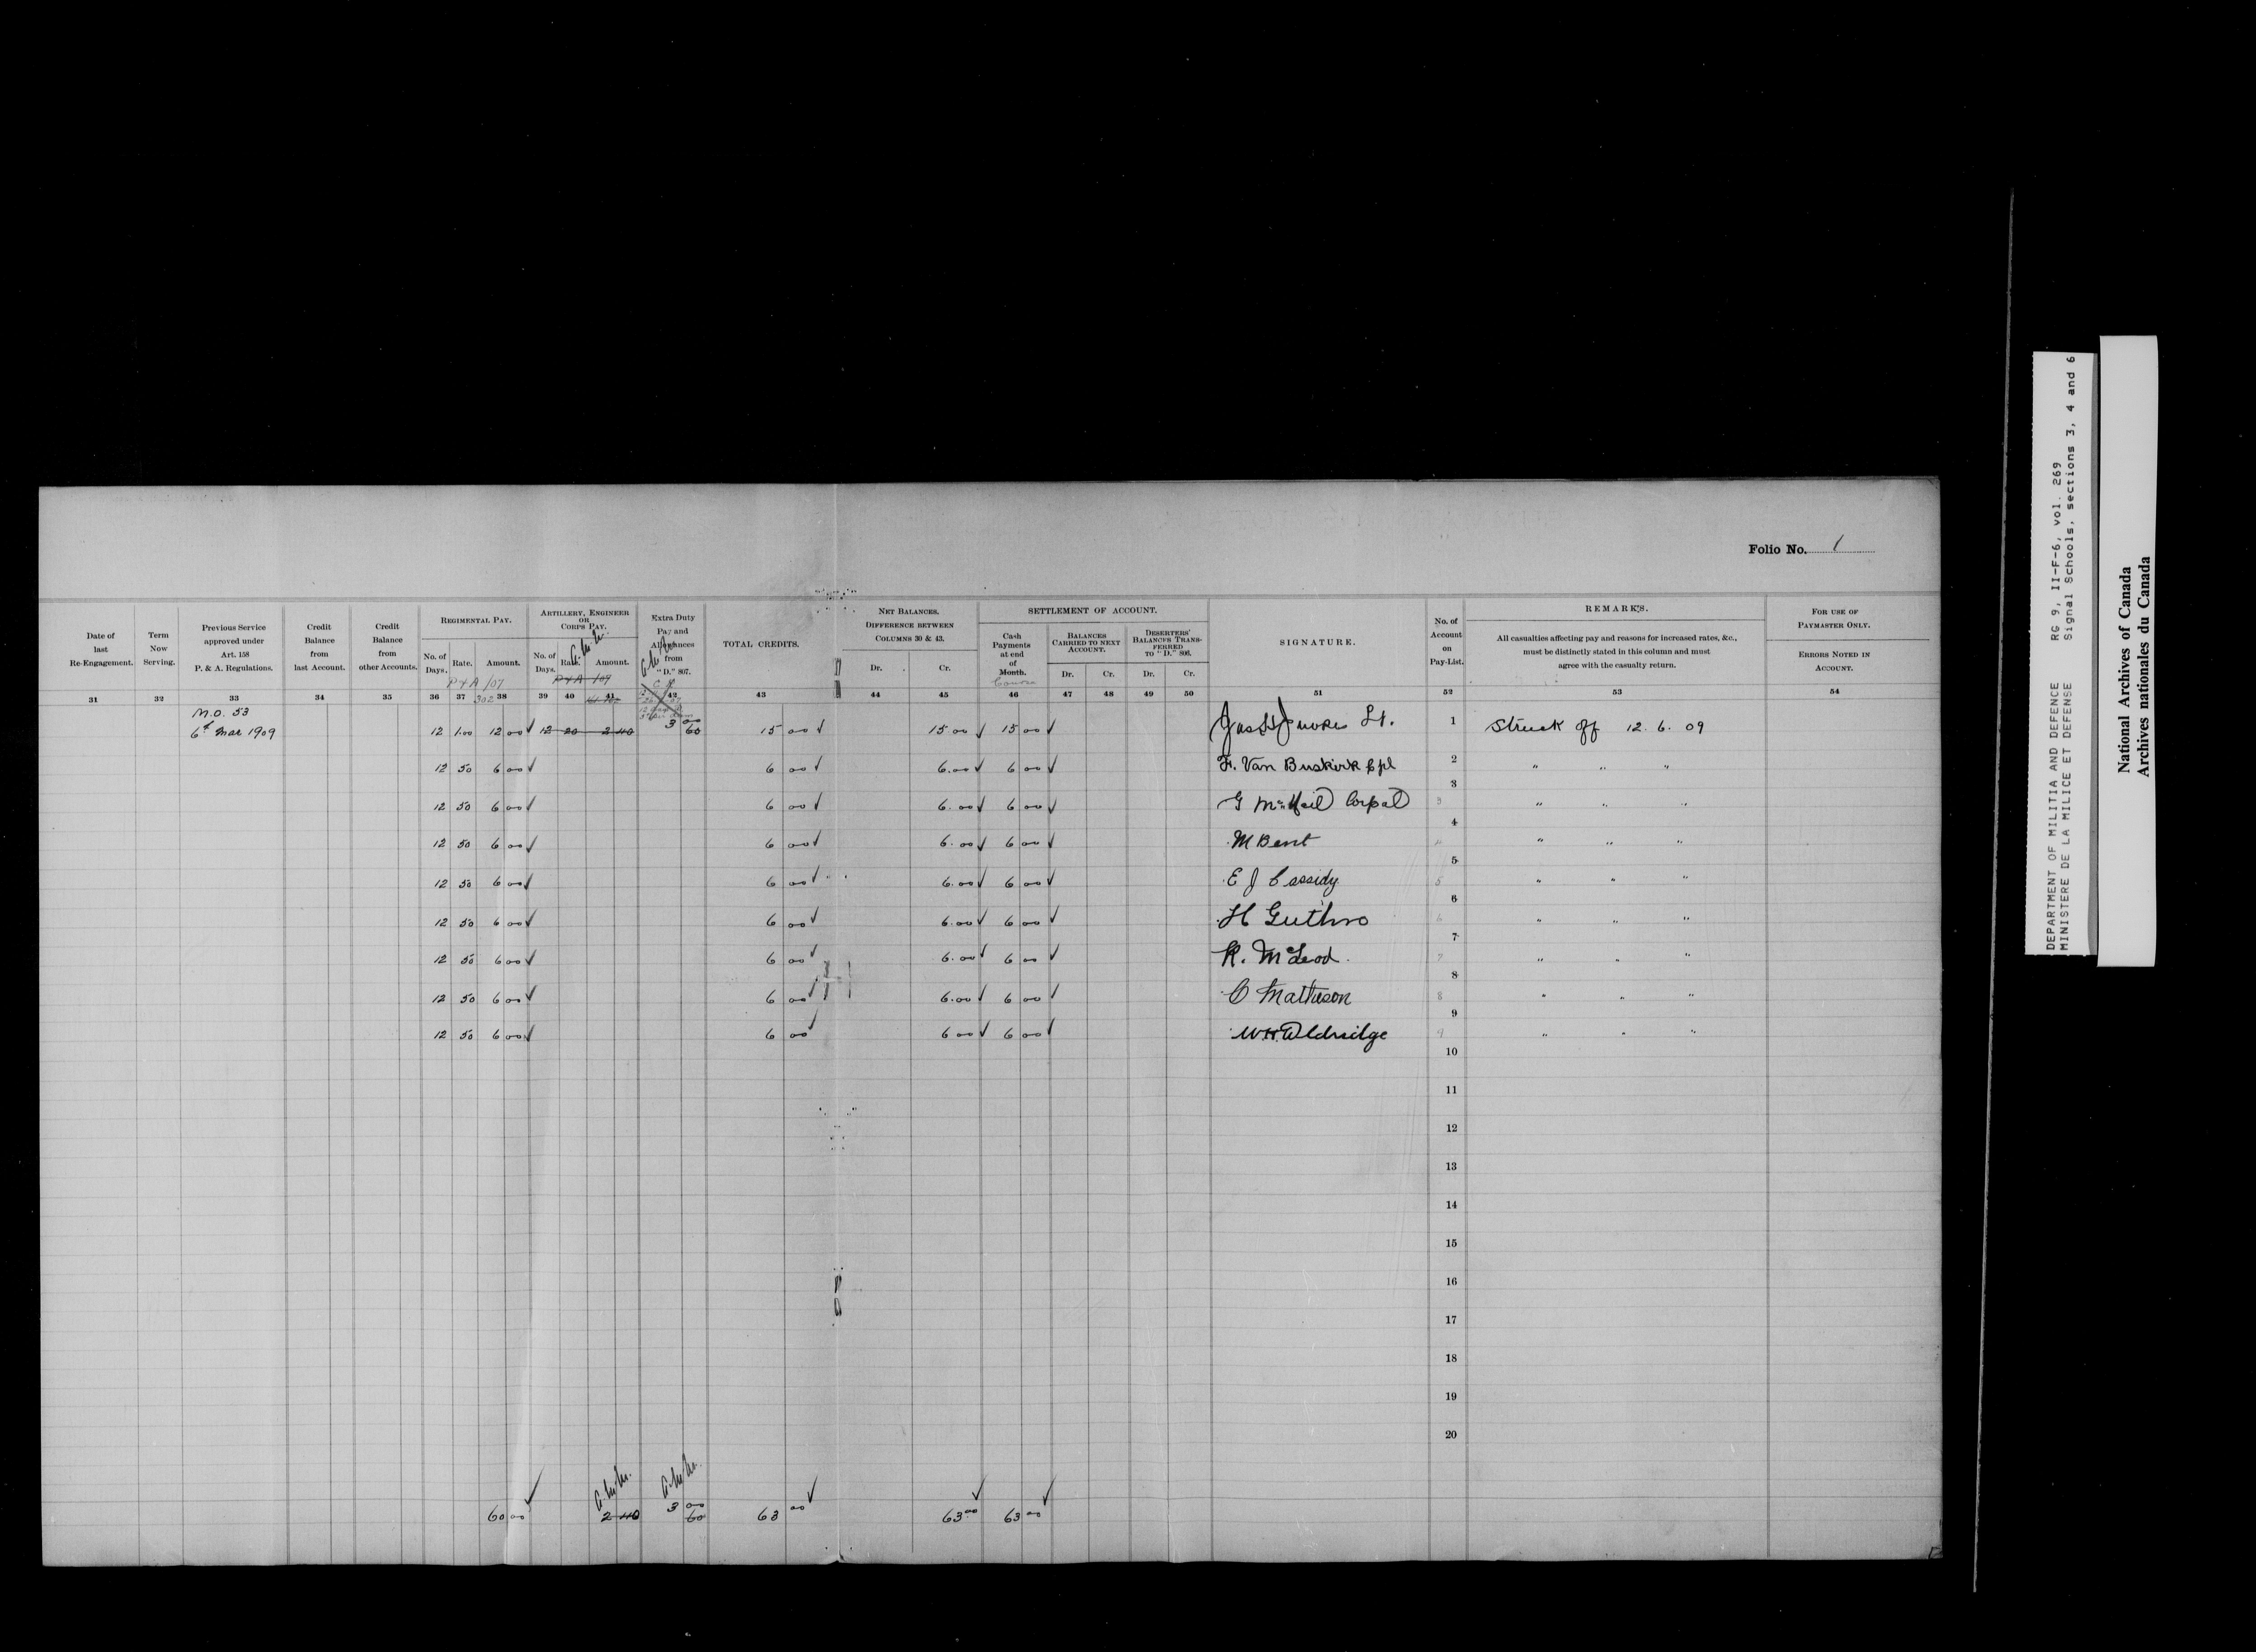 Folio No. 1
Date of last Re-Engagement.
Term Now Serving.
Previous Service approved under Art. 158 P. & A. Regulations.
Credit Balance from last Account.
Credit Balance from other Accounts.
REGIMENTAL PAY.
No. of Days. Rate. Amount.
P & A /07
302
ARTILLERY, ENGINEER OR CORPS PAY.
No. of Days. Rate. Amount.
P & A /07
Extra Duty Pay and Allowances from "D." 807.
TOTAL CREDITS.
NET BALANCES.
DIFFERENCE BETWEEN COLUMNS 30 & 43.
Dr. Cr.
SETTLEMENT OF ACCOUNT.
Cash Payments at end of Month.
Course
BALANCES CARRIED TO NEXT ACCOUNT.
Dr. Cr.
DESERTERS' BALANCES TRANSFERRED TO "D." 806.
Dr. Cr.
SIGNATURE.
No. of Account on Pay-List.
REMARKS.
All casualties affecting pay and reasons for increased rates, &c., must be distinctly stated in this column and must agree with the casualty return.
FOR USE OF PAYMASTER ONLY.
ERRORS NOTED IN ACCOUNT.
31 32 33 34 35 36 37 38 39 40 41 42 43 44 45 46 47 48 49 50 51 52 53 54
M.O. 53
6th Mar 1909 12 1.00 12 00 12 20 2 40 3 00 60 15 00 15 00 15 00 Lt. 1 Struck off 12. 6. 09
12 50 6 00 6 00 6.00 6 00 F. Van Buskirk Cpl 2 " " "
12 50 6 00 6 00 6.00 6 00 G McNeil Corpal 3 " " "
12 50 6 00 6 00 6.00 6 00 M Bent 4 " " "
12 50 6 00 6 00 6.00 6 00 E J Cassidy 5 " " "
12 50 6 00 6 00 6.00 6 00 H Guthro 6 " " "
12 50 6 00 6 00 6.00 6 00 R. McLeod 7 " " "
12 50 6 00 6 00 6.00 6 00 C Matheson 8 " " "
12 50 6 00 6 00 6 00 6 00 W.H. Aldridge 9 " " "
10
11
12
13
14
15
16
17
18
19
20
60 00 2 40 3 00 60 63 00 63 00 63 00
DEPARTMENT OF MILITIA AND DEFENCE RG 9, II-F-6, vol. 269
MINISTERE DE LA MILICE ET DEFENSE Signal Schools, sections 3, 4 and 6
National Archives of Canada
Archives nationales du Canada